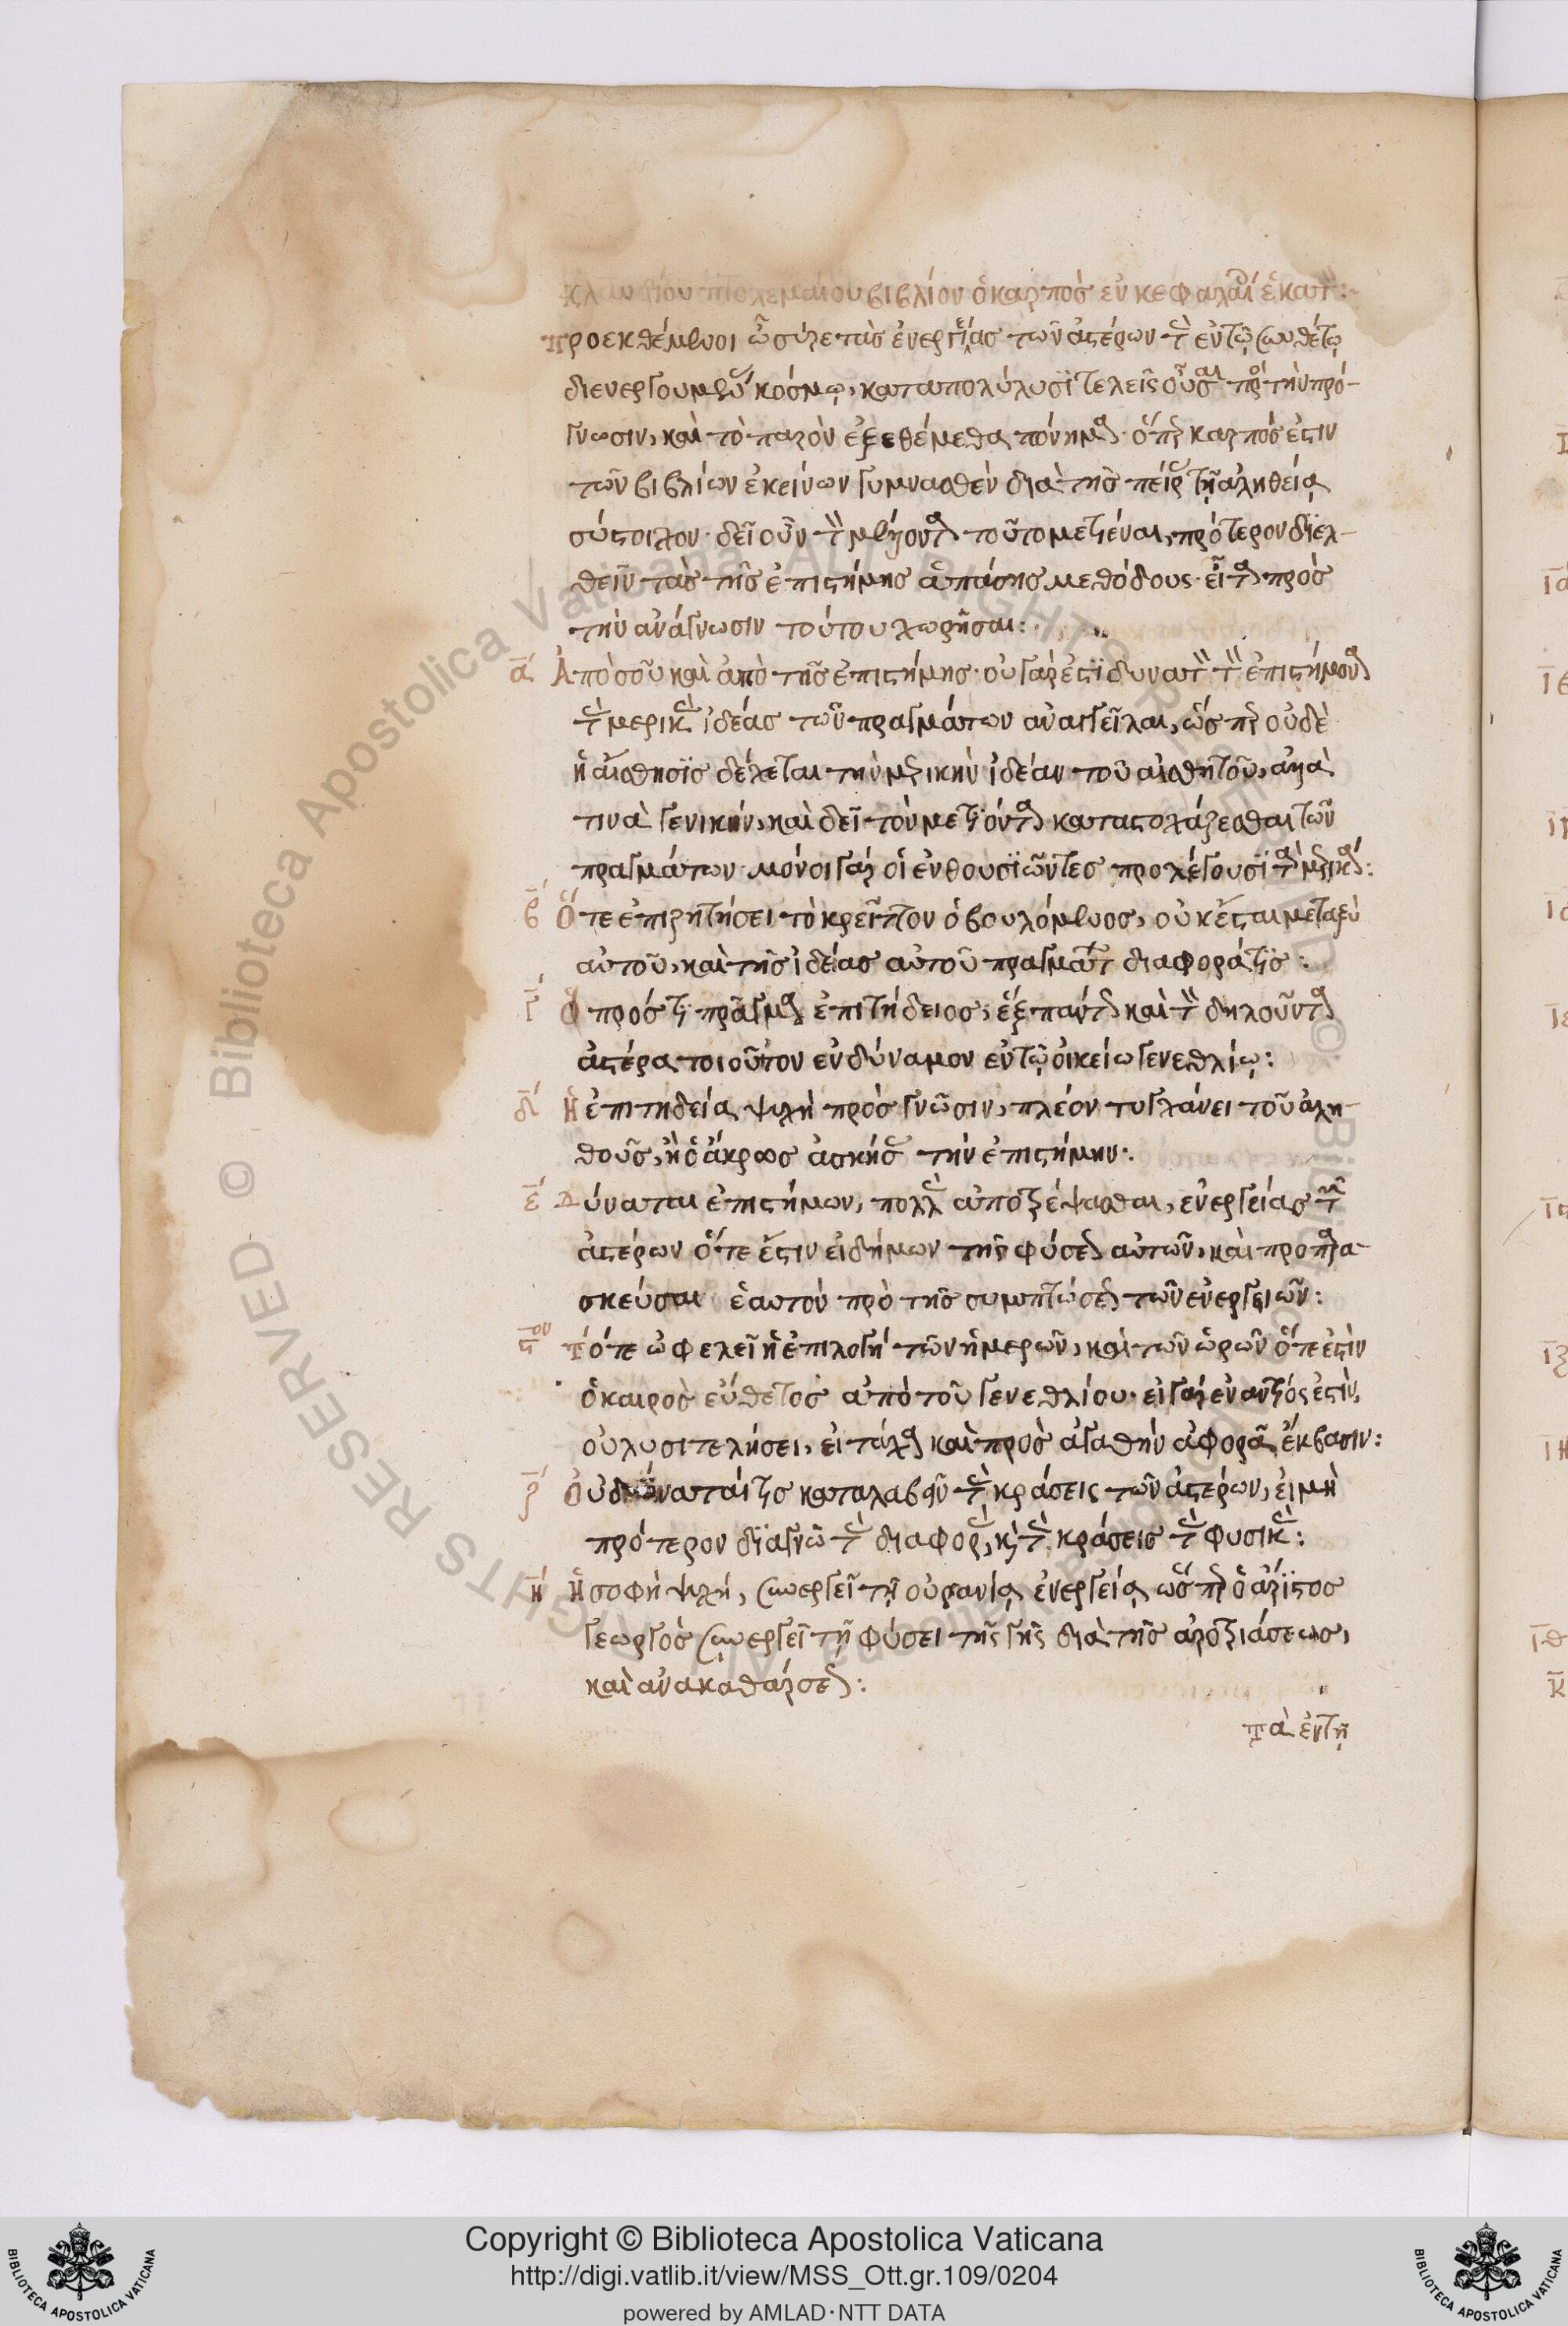 κλαυδίου πτολεμαίου βιβλίον ὁ καρπὸς ἐν κεφαλαί ἑκατ:
προεκθέμενοι ὦ σύρε τὰς ἐνεργείας τῶν ἀστέρων τὰς ἐν τῷ συνθέτῳ
διενεργουμένας κόσμῳ, κατὰ πολὺ λυσιτελεῖς οὔσας πρὸς τὴν πρό-
γνωσιν, καὶ τὸ παρὸν ἐξεθέμεθα πόνημα· ὅπερ καρπός ἐστιν
τῶν βιβλίων ἐκείνων γυμνασθὲν διὰ τῆς πείρας τῇ ἀληθείᾳ
σύστοιχον· δεῖ οὖν τὸν μέλλοντα τοῦτο μετιέναι, πρότερον διελ-
θεῖν τὰς τῆς ἐπιστήμης ἁπάσης μεθόδους· εἶτα πρὸς
τὴν ἀνάγνωσιν τούτου χωρῆσαι:
α Ἀπὸ σοῦ καὶ ἀπὸ τῆς ἐπιστήμης· οὐ γάρ ἐστι δυνατὸν τὸν ἐπιστήμονα
τὰς μερικὰς ἰδέας τῶν πραγμάτων ἀναγγεῖλαι, ὥσπερ οὐδὲ
ἡ αἴσθησις δέχεται τὴν μερικὴν ἰδέαν τοῦ αἰσθητοῦ, ἀλλά
τινα γενικήν, καὶ δεῖ τὸν μετιόντα καταστοχάζεσθαι τῶν
πραγμάτων· μόνοι γὰρ οἱ ἐνθουσιῶντες προλέγουσι τὰ μερικά:
β Ὅτε ἐπιζητήσει τὸ κρεῖττον ὁ βουλόμενος, οὐκ ἔσται μεταξὺ
αὐτοῦ, καὶ τῆς ἰδέας αὐτοῦ πράγματος διαφορά τις:
γ Ὁ πρός τι πρᾶγμα ἐπιτήδειος, ἕξει πάντως καὶ τὸν δηλοῦντα
ἀστέρα τοιοῦτον ἐνδύναμον ἐν τῷ οἰκείω γενεθλίῳ:
δ Ἡ ἐπιτηδεία ψυχὴ πρὸς γνῶσιν, πλέον τυγχάνει τοῦ ἀλη-
θοῦς, ἢ ὁ ἄκρως ἀσκήσας τὴν ἐπιστήμην:
ε Δύναται ἐπιστήμων, πολλὰς ἀποτρέψασθαι, ἐνεργείας τῶν
ἀστέρων ὅτε ἔστιν εἰδήμων τῆς φύσεως αὐτῶν, καὶ προπαρα-
σκεύσαι ἑαυτὸν πρὸ τῆς συμπτώσεως τῶν ἐνεργειῶν:
ς Τότε ὠφελεῖ ἡ ἐπιλογή τῶν ἡμερῶν, καὶ τῶν ὡρῶν ὅτε ἐστὶν
ὁ καιρὸς εὔθετος ἀπὸ τοῦ γενεθλίου· εἰ γὰρ ἐναντίος ἐστίν,
οὐ λυσιτελήσει, εἰ τάχα καὶ πρὸς ἀγαθὴν ἀφορᾷ ἔκβασιν:
ζ Οὐ δύναταί τις καταλαβεῖν τὰς κράσεις τῶν ἀστέρων, εἰ μὴ
πρότερον διαγνῶ τὰς διαφοράς, καὶ τὰς κράσεις τὰς φυσικάς:
η Ἡ σοφὴ ψυχή, συνεργεῖ τῇ οὐρανίᾳ ἐνεργείᾳ ὥσπερ ὁ ἄριστος
γεωργὸς συνεργεῖ τῇ φύσει τῆς γῆς διὰ τῆς ἀροτριάσεως,
καὶ ἀνακαθάρσεως:
τὰ ἐν τῇ
Copyright © Biblioteca Apostolica Vaticana
http://digi.vatlib.it/view/MSS_Ott.gr.109/0204
powered by AMLAD·NTT DATA